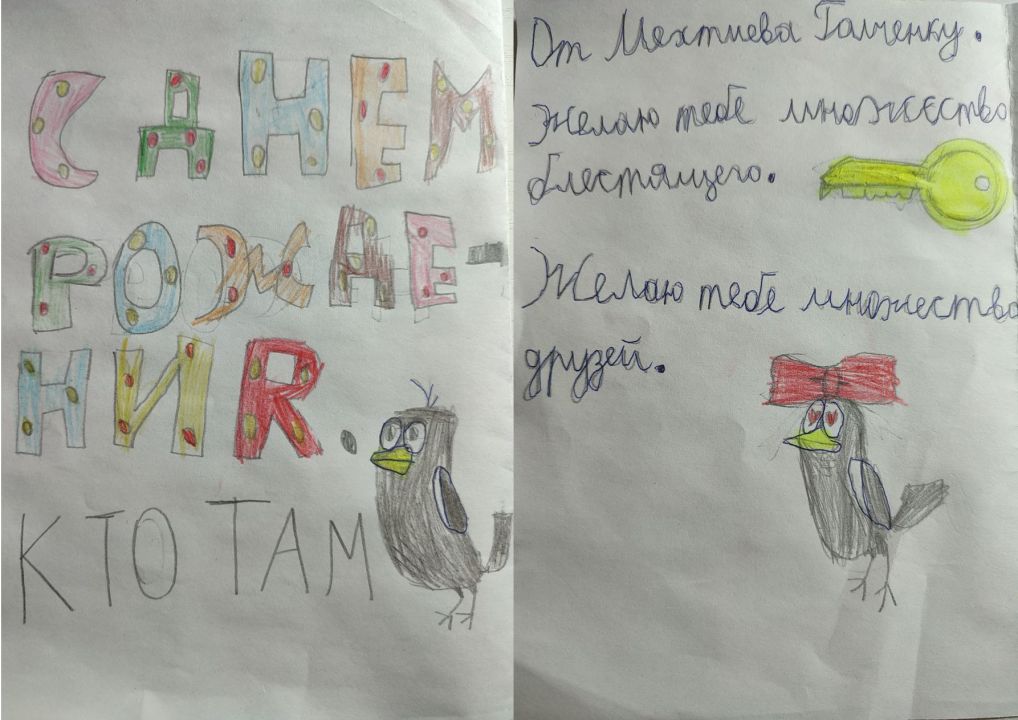 С ДНЕМ
РОЖДЕ-
НИЯ.
КТО ТАМ
От Мехтиева Галченку.
Желаю тебе множество
блестящего.
Желаю тебе множество
друзей.